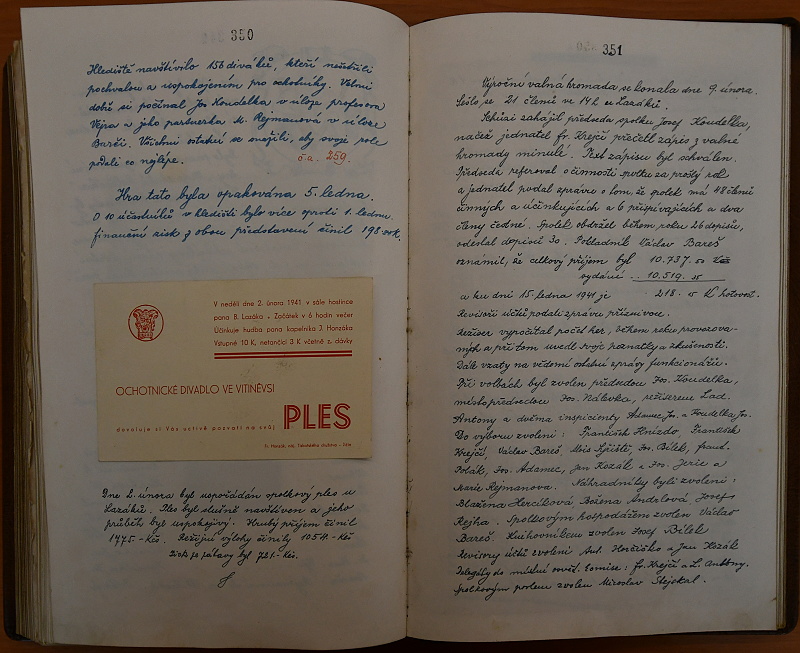 350
Hlediště navštívilo 156 diváků, kteří nešetřili
pochvalou a uspokojením pro ochotníky. Velmi
dobře si počínal Jos Koudelka v úloze profesora
Vejra a jeho partnerka M. Rejmanová v úloze
Barči. Všichni ostatní se snažili, aby svoje role
podali co nejlépe.
č.a. 259.
Hra tato byla opakována 5. ledna.
O 10 účastníků v hledišti bylo více oproti 1. lednu.
Finanční zisk z obou představení činil 198 kor.
V neděli dne 2. února 1941 v sále hostince
pana B. Lazáka • Začátek v 6 hodin večer
Účinkuje hudba pana kapelníka J. Honzáka
Vstupné 10 K, netančící 3 K včetně z. dávky
OCHOTNICKÉ DIVADLO VE VITINĚVSI
dovoluje si Vás uctivě pozvati na svůj
PLES
Dne 2. února byl uspořádán spolkový ples u
Lazáků. Ples byl slušně navštíven a jeho
průběh byl uspokojivý. Hrubý příjem činil
1775.- Kč. Režijní výlohy činily 1054.- Kč
zisk ze zábavy byl 721.- Kč.
351
Výroční valná hromada se konala dne 9. února.
Sešlo se 21 členů ve 14 h. u Lazáků.
Schůzi zahájil předseda spolku Josef Koudelka,
načež jednatel fr. Krejčí přečetl zápis z valné
hromady minulé. Text zápisu byl schválen.
Předseda referoval o činnosti spolku za prošlý rok
a jednatel podal zprávu o tom, že spolek má 48 členů
činných a účinkujících a 6 přispívajících a dva
členy čestné. Spolek obdržel během roku 26 dopisů,
odeslal dopisů 30. Pokladník Václav Bareš
oznámil, že celkový příjem byl 10.737.50
vydání 10.519.35
a ku dni 15. ledna 1941 je 218.15 K hotovost.
Revisoři účtů podali zprávu příznivou.
Režiser vypočítal počet her, během roku provozova-
ných a při tom uvedl svoje poznatky a zkušenosti.
Dále vzaty na vědomí ostatní zprávy funkcionářů.
Při volbách byl zvolen předsedou Jos. Koudelka,
místopředsedou Jos. Nálevka, režiserem Lad.
Antony a dvěma inspicienty Adamec Jos. a Koudelka Jos.
Do výboru zvoleni: František Hnízdo, František
Krejčí, Václav Bareš, Alois Kříště, Jos. Bílek, frant.
Polák, Jos. Adamec, Jan Kozák a Jos. Jerie a
Marie Rejmanova. Náhradníky byli zvoleni:
Blažena Hercíková Božena Andrlová Josefa
Rejha. Spolkovým hospodářem zvolen Václav
Bareš. Knihovníkem zvolen Josef Bílek
Revisory účtů zvoleni Ant. a Jan Kozák
Delegáty do místní osvět. komise: fr. Krejčí a L. Antony.
Spolkovým poslem zvolen Miroslav Stejskal.